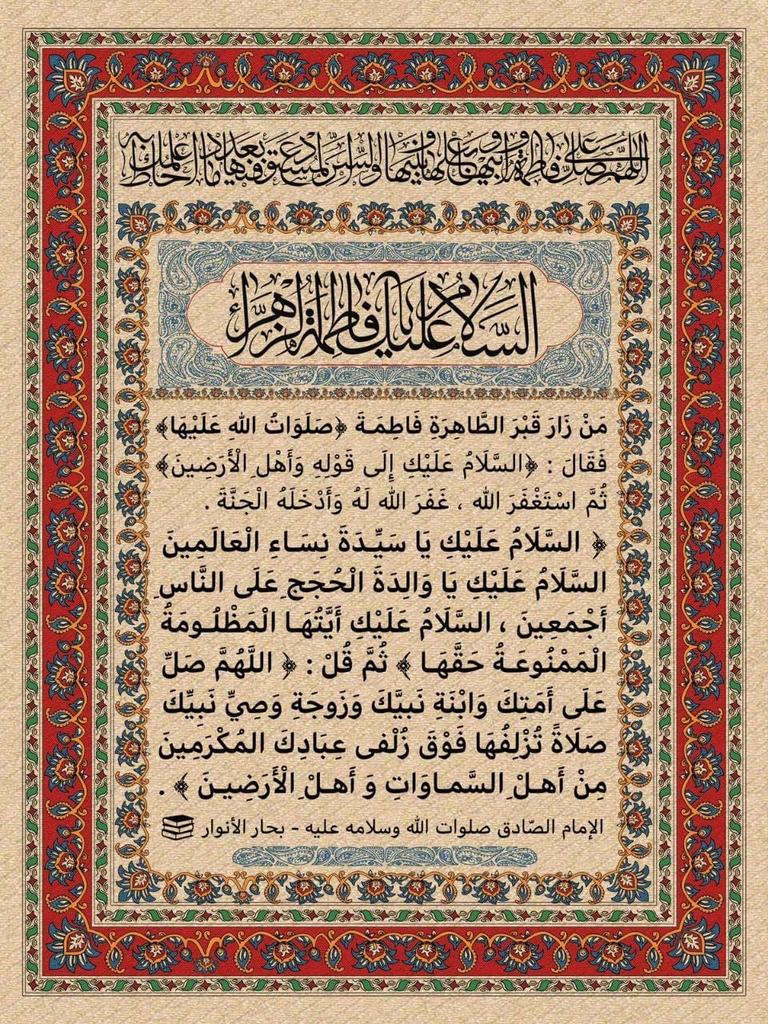 اللهم صل على فاطمة وأبيها وبعلها وبنيها والسر المستودع فيها بعدد ما أحاط به علمك
السَّلَامُ عَلَيْكِ يَا فَاطِمَةُ الزَّهْرَاءُ
مَنْ زَارَ قَبْرَ الطَّاهِرَةِ فَاطِمَةَ ﴿صَلَوَاتُ اللهِ عَلَيْهَا﴾
فَقَالَ : ﴿السَّلَامُ عَلَيْكِ إِلَى قَوْلِهِ وَأَهْلِ الْأَرَضِينَ﴾
ثُمَّ اسْتَغْفَرَ الله ، غَفَرَ الله لَهُ وَأَدْخَلَهُ الْجَنَّةَ .
﴿ السَّلَامُ عَلَيْكِ يَا سَيِّدَةَ نِسَاءِ الْعَالَمِينَ
السَّلَامُ عَلَيْكِ يَا وَالِدَةَ الْحُجَجِ عَلَى النَّاسِ
أَجْمَعِينَ ، السَّلَامُ عَلَيْكِ أَيَّتُهَا الْمَظْلُومَةُ
الْمَمْنُوعَةُ حَقَّهَا ﴾ ثُمَّ قُلْ : ﴿ اللَّهُمَّ صَلِّ
عَلَى أَمَتِكَ وَابْنَةِ نَبِيَّكَ وَزَوجَةِ وَصِيِّ نَبِيِّكَ
صَلَاةً تُزْلِفُهَا فَوْقَ زُلْفى عِبَادِكَ المُكْرَمِينَ
مِنْ أَهلْ السَّماوَاتِ وَ أَهلْ الْأَرَضِينَ ﴾ .
الإمام الصّادق صلوات الله وسلامه عليه - بحار الأنوار